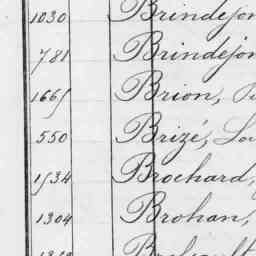 1030 Brindejon
781 Brindejon
1665 Brion,
550 Brizé, Lou
1534 Brochard,
1304 Brohan,